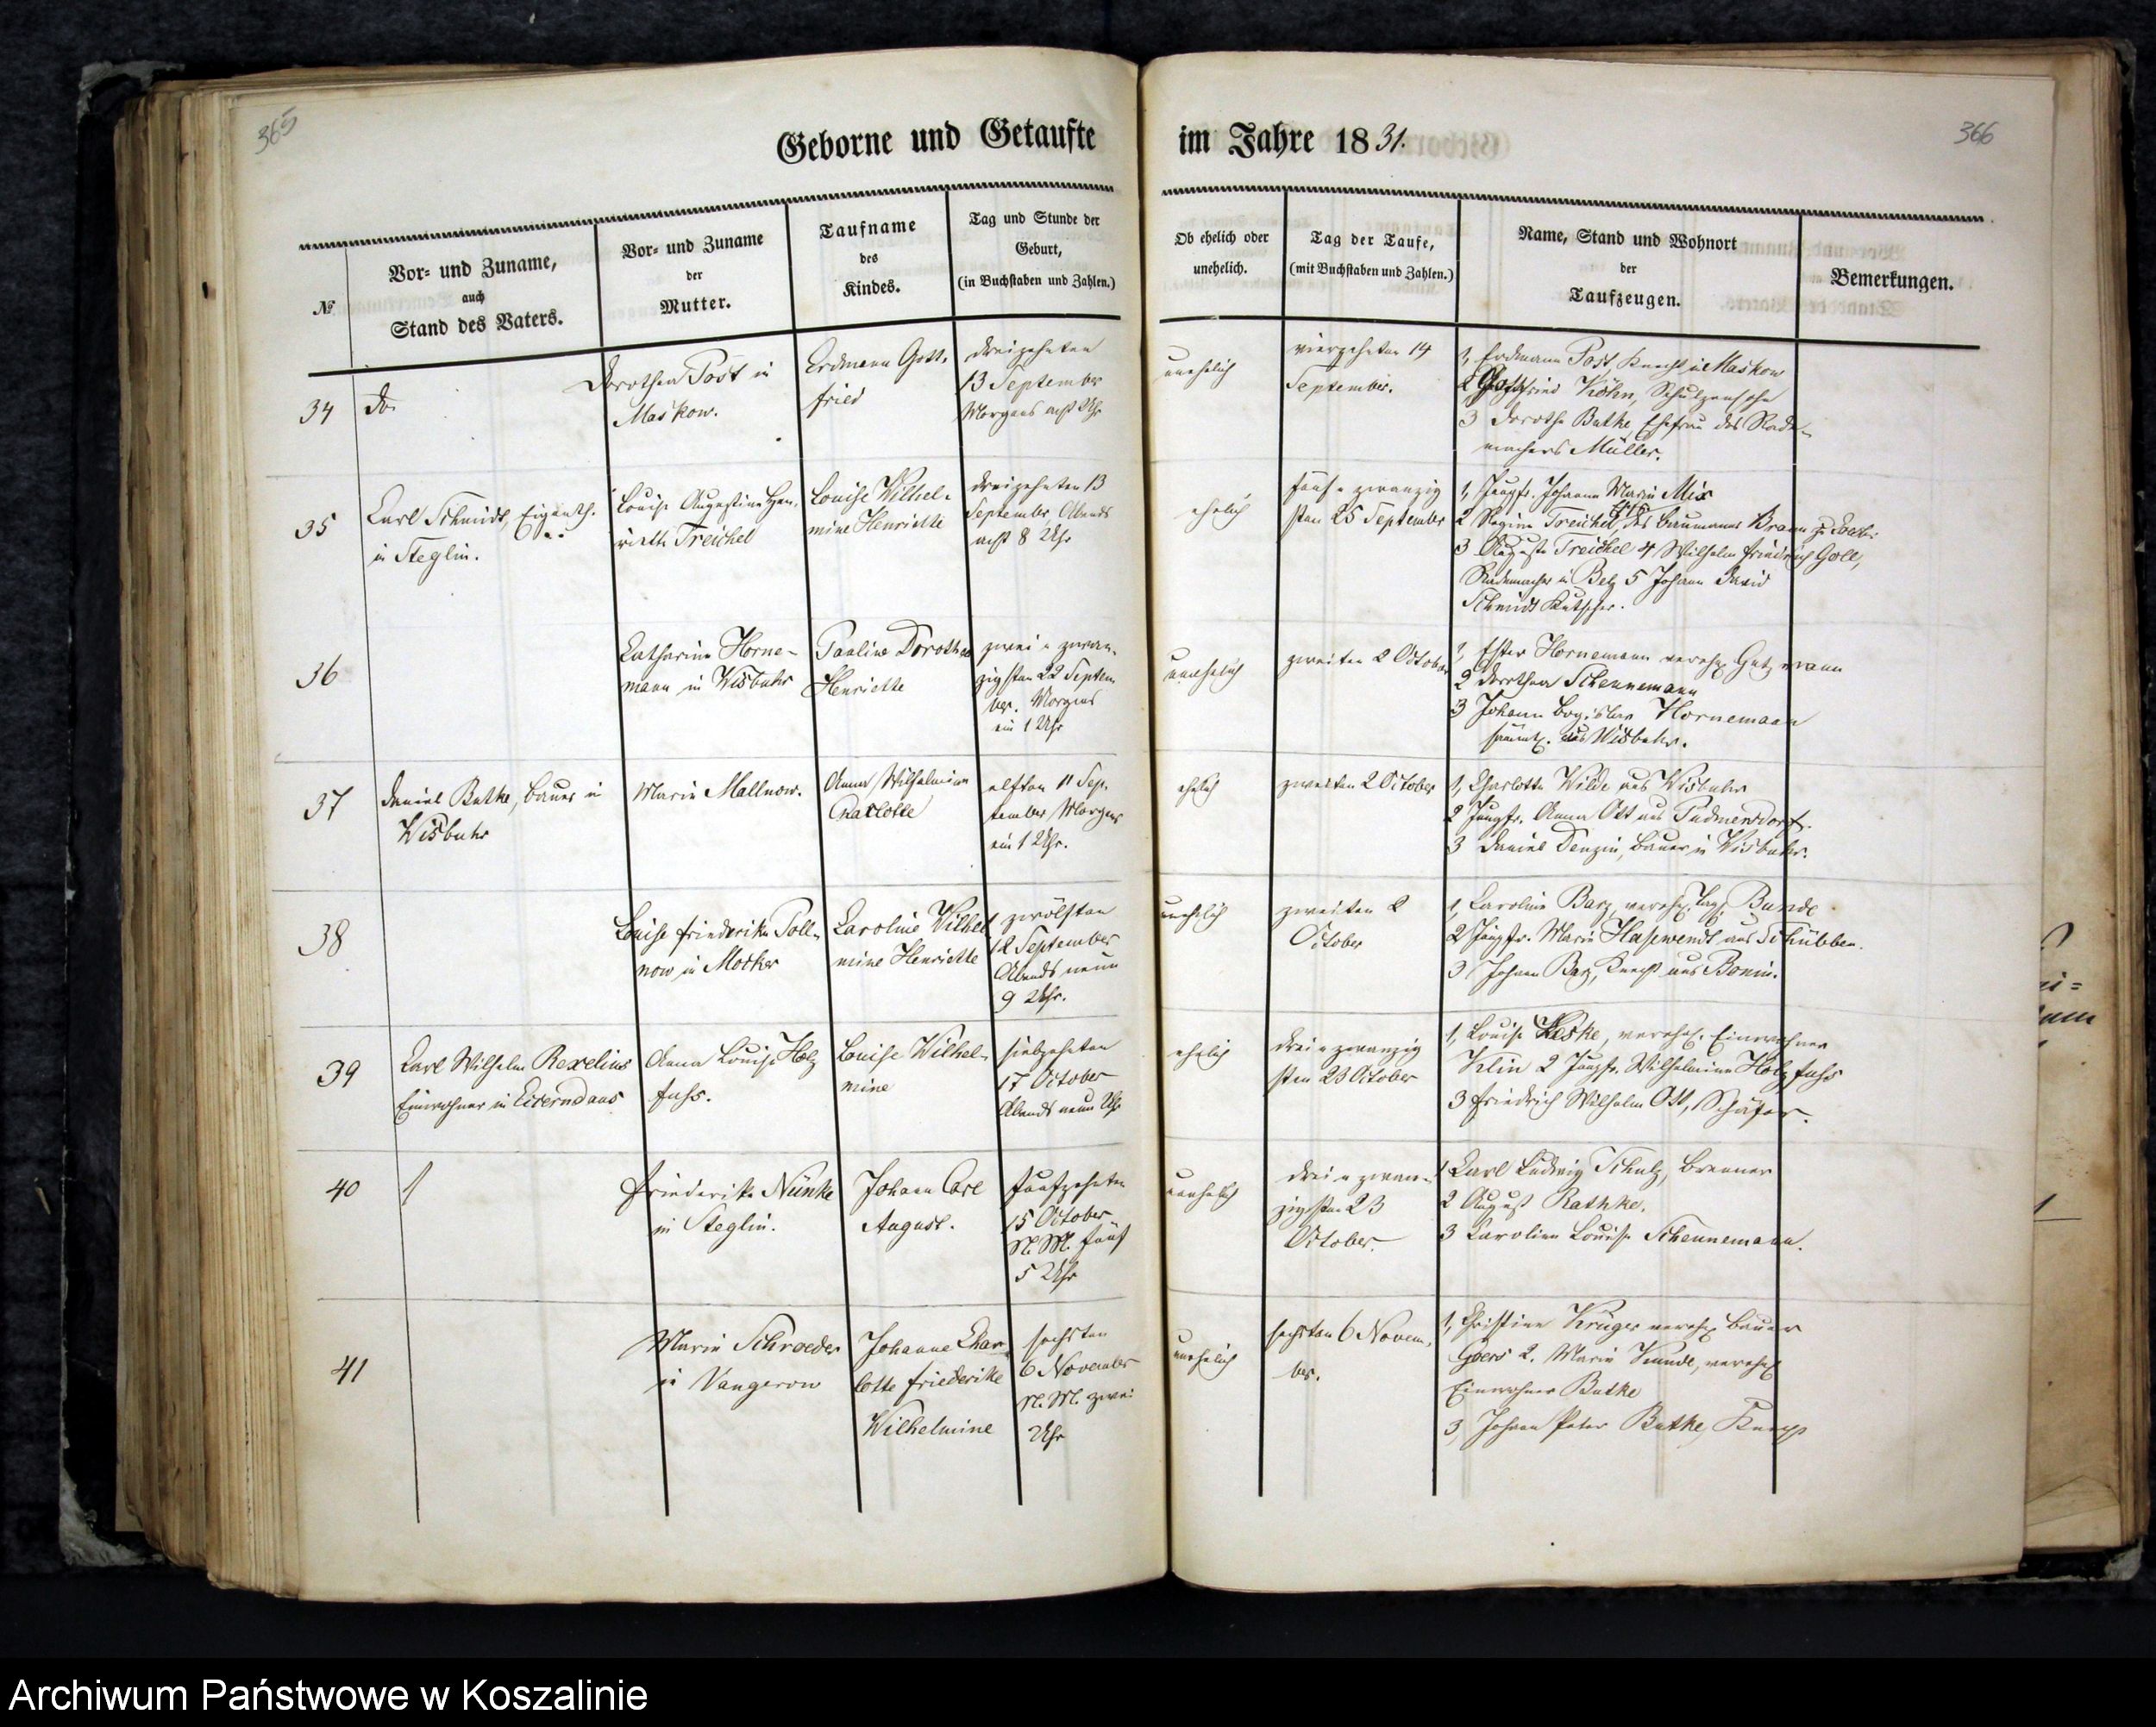 365
Geborne und Getaufte
im Jahre 1831.
366
№
Vor- und Zuname,
auch
Stand des Vaters.
Vor- und Zuname
der
Mutter.
Taufname
des
Kindes.
Tag und Stunde der
Geburt,
(in Buchstaben und Zahlen.)
Ob ehelich oder
unehelich.
Tag der Taufe,
(mit Buchstaben und Zahlen.)
Name, Stand und Wohnort
der
Taufzeugen.
Bemerkungen.
34
do.
Dorothea Post in
Maskow.
Erdmann Gott-
fried
dreizehnten
13 September
Morgens acht Uhr
unehelich
vierzehnten 14
September.
1, Erdmann Post, Knecht in Maskow
2 Gottfried Köhn, Schulzensohn
3 Dorothe Bathke, Ehefrau des Rade-
machers Müller.
35
Carl Schmidt, Eigenth.
in Steglin.
Louise Augustine Hen-
riette Treichel
Louise Wilhel-
mine Henriette
dreizehnten 13
September Abends
acht 8 Uhr
ehelich
fünf u zwanzig
sten 25 September
1, Jungfr. Johanna Marie Mix
2 Regine Treichel, des Baumanns Braun
3 Auguste Treichel 4 Wilhelm Friedrich Goll,
Rademacher in Belz 5 Johann David
Schmidt Kutscher.
36
Catharine Horne-
mann in Wisbuhr
Pauline Dorothea
Henriette
zwei u zwan-
zigsten 22 Septem
ber. Morgens
ein 1 Uhr
unehelich
zweiten 2 October
1, Ester Hornemann verehl.
2 Dorothea Schennemann
3 Johann Bogislav Hornemann
sämtl. aus Wisbuhr.
37
Daniel Bathke, Bauer in
Wisbuhr
Marie Mallnow.
Anna Wilhelmine
Charlotte
elften 11 Sep-
tember Morgens
ein 1 Uhr.
ehelich
zweiten 2 October
1, Charlotte Wilde aus Wisbuhr
2 Jungfr. Anna Ott aus
3 Daniel Denzin, Bauer in Wisbuhr.
38
Louise Friederike Poll-
now in Mocker
Caroline Wilhel
mine Henriette
zwölften
12 September
Abends neun
9 Uhr.
unehelich
zweiten 2
October
1, Caroline Barz, verehl. Tag. Bunde
2 Jungfr. Marie Hasewendt aus Schübben.
3 Johann Barz, Knecht aus Bonin.
39
Carl Wilhelm Rexelius
Einwohner in
Anna Louise Holz
fuhs.
Louise Wilhel-
mine
siebzehnten
17 October
Abends neun Uhr
ehelich
drei u zwanzig
sten 23 October
1, Louise Keske, verehl. Einwohner
Klin 2 Jungfr. Wilhelmine Holzfuhs
3 Friedrich Wilhelm Ott, Schäfer.
40
Friederike Nünke
in Steglin.
Johann Carl
August.
funfzehnten
15 October
N. M. fünf
5 Uhr
unehelich
drei u zwan-
zigsten 23
October.
1 Carl Ludwig Schulz, Brenner
2 August Rathke.
3 Caroline Louise Schennemann.
41
Marie Schroeder
in Vangerow
Johanne Char
lotte Friederike
Wilhelmine
sechsten
6 November
N. M. zwei
Uhr
unehelich
sechsten 6 Novem-
ber.
1, Christine Krüger verehl. Bauer
Goers 2. Marie Kunde, verehl
Einwohner Bathke
3, Johann Peter Bathke, Knecht
Archiwum Państwowe w Koszalinie